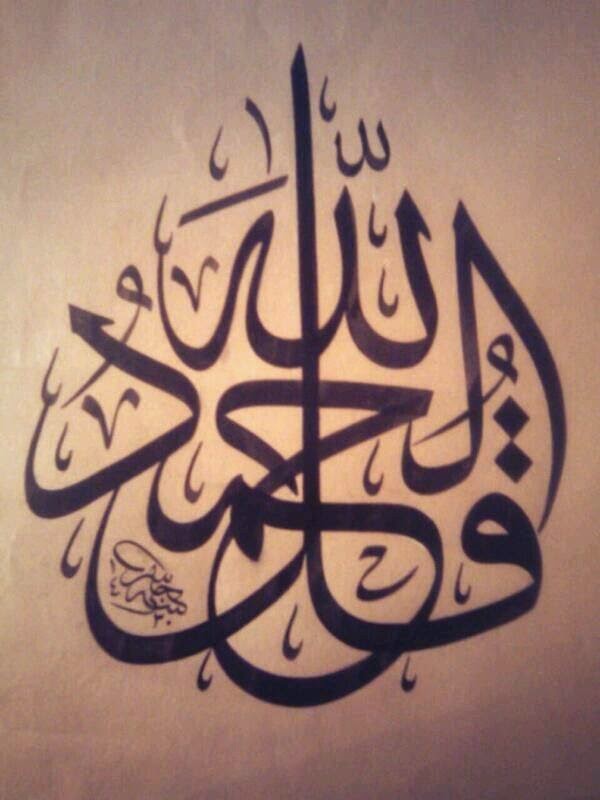 قُلِ الْحَمْدُ لِلّٰهِ